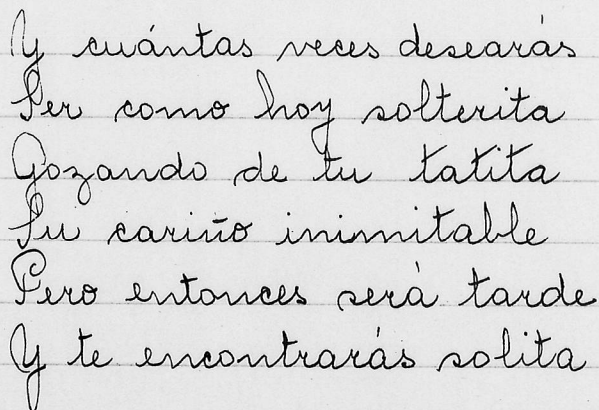 Y cuántas veces desearás
Ser como hoy solterita
Gozando de tu tatita
Su cariño inimitable
Pero entonces será tarde
Y te encontrarás solita